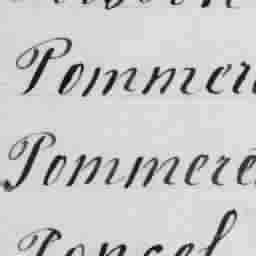 Pommer
Pommere
Poncel